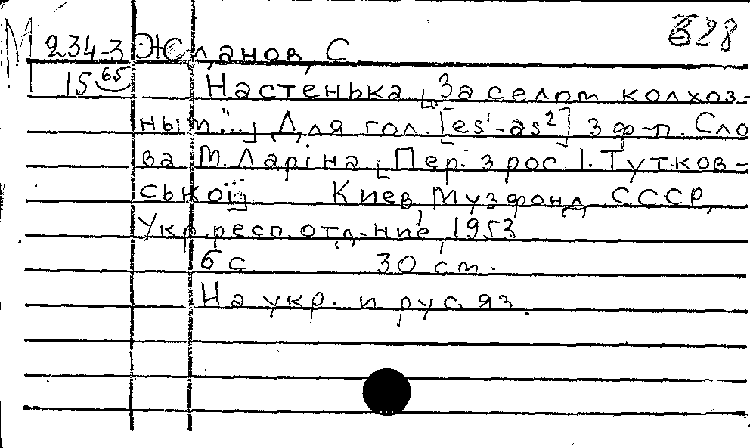 М 234-3 Жданов, С. 628
15 65 Настенька [За селом колхоз-
ным..."] Для гол. [es¹-as²] з ф-п. Сло
ва М. Ларіна [Пер. з рос. І. Тутков-
ської] Киев, Музфонд СССР,
Укр. респ. отд-ние, 1953
6 с. 30 см.
На укр. и рус. яз.